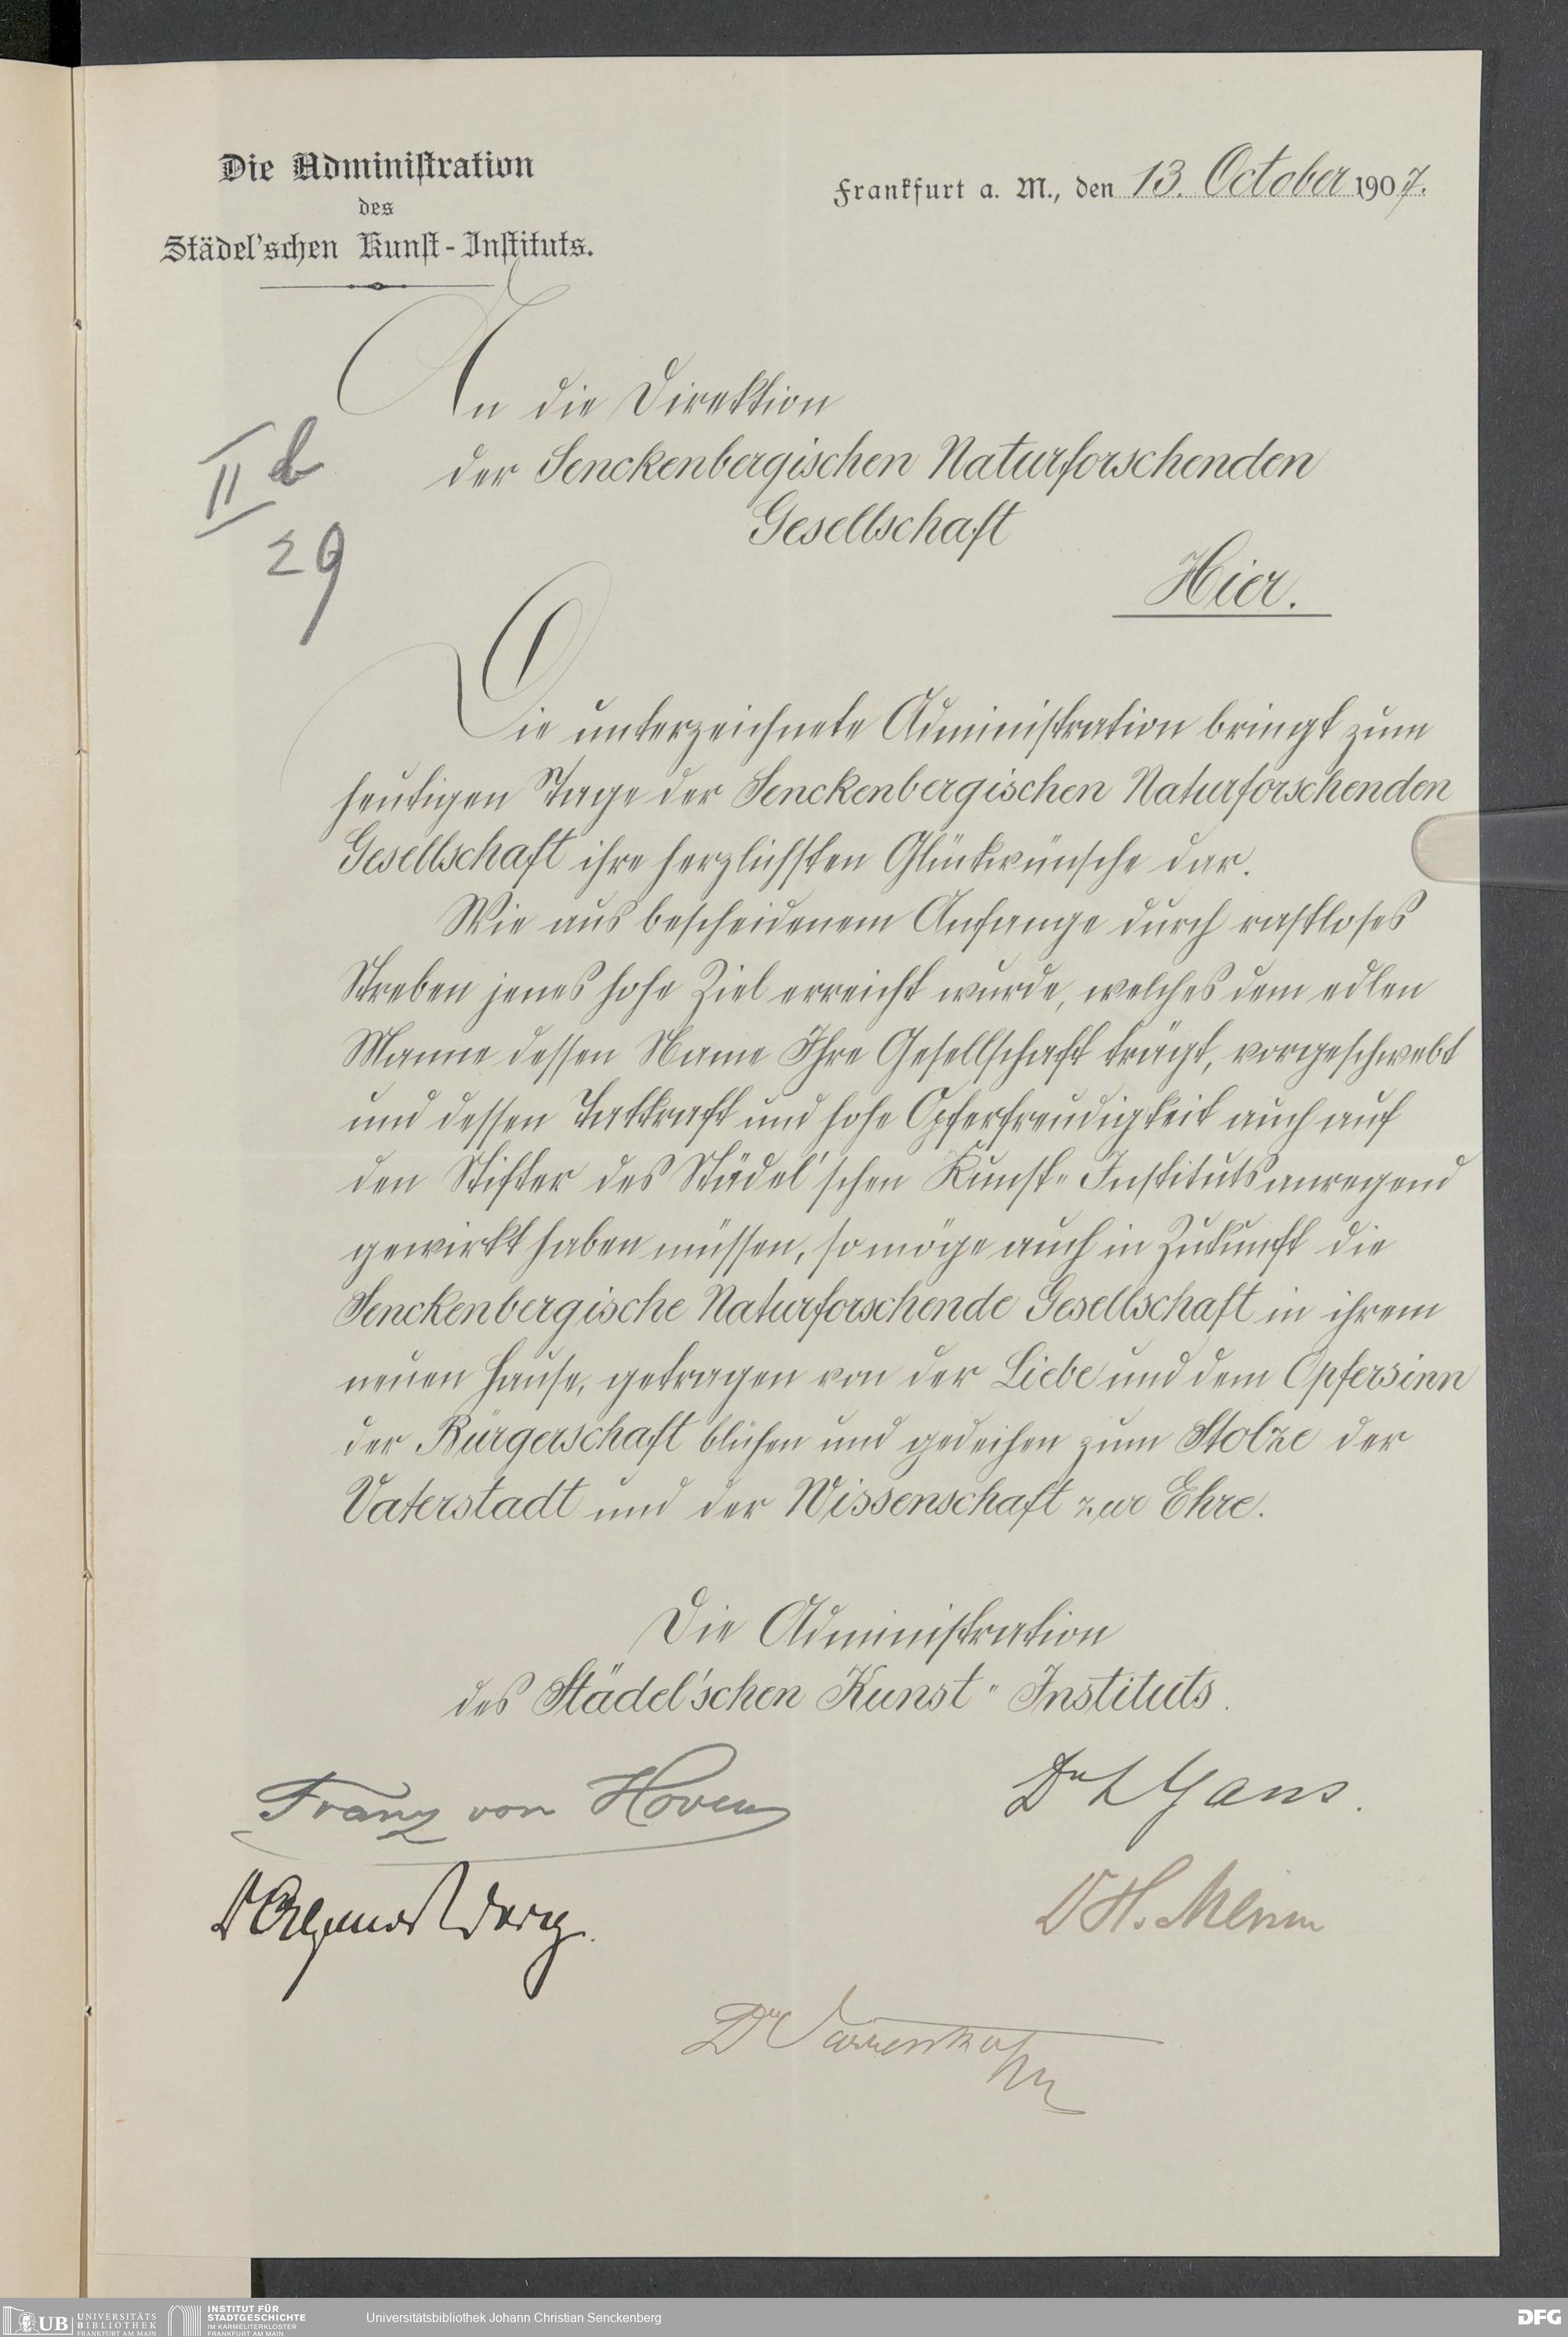 Die Administration
des
Städel'schen Kunst-Instituts.
Frankfurt a. M., den 13. October 1907.
An die Direktion
der Senckenbergischen Naturforschenden
Gesellschaft
Hier.
II b
29
Die unterzeichnete Administration bringt zum
heutigen Tage der Senckenbergischen Naturforschenden
Gesellschaft ihre herzlichsten Glückwünsche dar.
Wie aus bescheidenem Anfange durch rastloses
Streben jenes hohe Ziel erreicht wurde, welches dem edlen
Manne dessen Name Ihre Gesellschaft trägt, vorgeschwebt
und dessen Tatkraft und hohe Opferfreudigkeit auch auf
den Stifter des Städel'schen Kunst-Instituts anregend
gewirkt haben müssen, so möge auch in Zukunft die
Senckenbergische Naturforschende Gesellschaft in ihrem
neuen Hause, getragen von der Liebe und dem Opfersinn
der Bürgerschaft blühen und gedeihen zum Stolze der
Vaterstadt und der Wissenschaft zur Ehre.
Die Administration
des Städel'schen Kunst-Instituts.
Franz von Hoven
Dr L Gans.
Dr H.
Dr
UB UNIVERSITÄTS
BIBLIOTHEK
FRANKFURT AM MAIN
INSTITUT FÜR
STADTGESCHICHTE
IM KARMELITERKLOSTER
FRANKFURT AM MAIN
Universitätsbibliothek Johann Christian Senckenberg
DFG